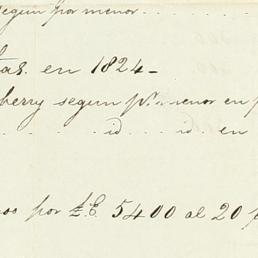 segun por menor . . .
tas. en 1824 –
herry segun pr. menor en p
. . . . . . id . . . id . en
os por £E. 5400 al 20 p